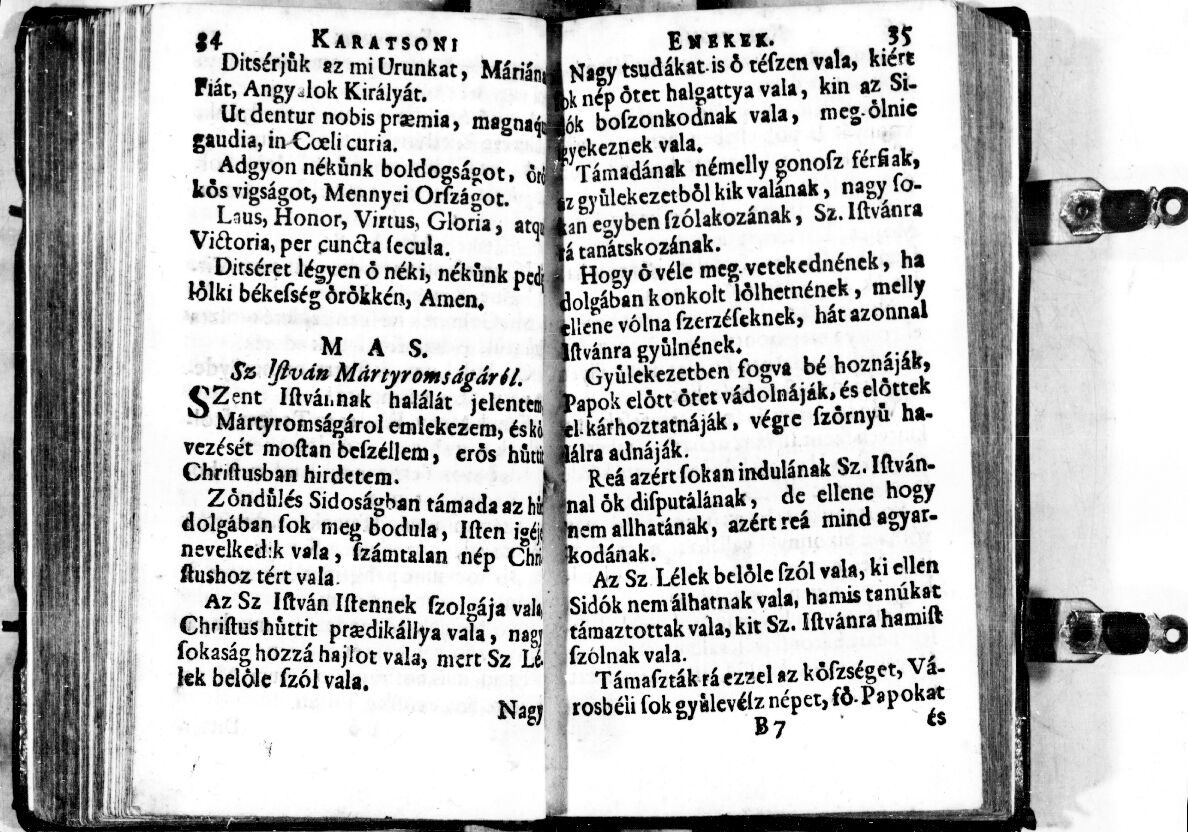 34 KARATSONI
Ditsérjůk az mi Urunkat, Máriána
Fiát, Angyalok Királyát.
Ut dentur nobis præmia, magnaq́
gaudia, in Cœli curia.
Adgyon nékůnk boldogságot, ŏrŏ
kŏs vigságot, Mennyei Orſzágot.
Laus, Honor, Virtus, Gloria, atq́
Victoria, per cuncta ſecula.
Ditséret légyen ŏ néki, nékůnk pedi
lŏlki békeſség ŏrŏkkén, Amen.
M A S.
Sz Iſtván Mártyromságáról.
SZent Iſtvánnak halálát jelentem
Mártyromságárol emlekezem, és kŏ
vezését moſtan beſzéllem, erŏs hůttit
Chriſtusban hirdetem.
Zŏndůlés Sidoságban támada az hů
dolgában ſok meg bodula, Iſten igéje
nevelkedik vala, ſzámtalan nép Chri
ſtushoz tért vala.
Az Sz Iſtván Iſtennek ſzolgája vala
Chriſtus hůttit prædikállya vala, nagy
ſokaság hozzá hajlot vala, mert Sz Lé
lek belŏle ſzól vala.
Nagy
ENEKEK. 35
Nagy tsudákat is ŏ téſzen vala, kiért
ok nép ŏtet halgattya vala, kin az Si-
ók boſzonkodnak vala, meg-ŏlnie
gyekeznek vala.
Támadának némelly gonoſz férfiak,
az gyůlekezetbŏl kik valának, nagy ſo-
kan egyben ſzólakozának, Sz. Iſtvánra
rá tanátskozának.
Hogy ŏ véle meg-vetekednének, ha
dolgában konkolt lŏlhetnének, melly
ellene vólna ſzerzéſeknek, hát azonnal
Iſtvánra gyůlnének.
Gyůlekezetben fogva bé hoznáják,
Papok elŏtt ŏtet vádolnáják, és elŏttek
el kárhoztatnáják, végre ſzŏrnyů ha-
lálra adnáják.
Reá azért ſokan indulának Sz. Iſtván-
nal ŏk diſputálának, de ellene hogy
nem allhatának, azért reá mind agyar-
kodának.
Az Sz Lélek belŏle ſzól vala, ki ellen
Sidók nem álhatnak vala, hamis tanúkat
támaztottak vala, kit Sz. Iſtvánra hamiſt
ſzólnak vala.
Támaſzták rá ezzel az kŏſzséget, Vá-
rosbéli ſok gyůlevéſz népet, fŏ-Papokat
B 7 és